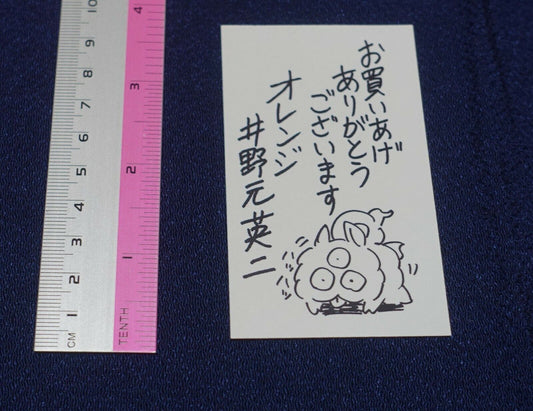 お買いあげ
ありがとう
ございます
オレンジ
井野元英二
10
9
8
7
6
5
4
3
2
1
CM
4
3
2
1
TENTH